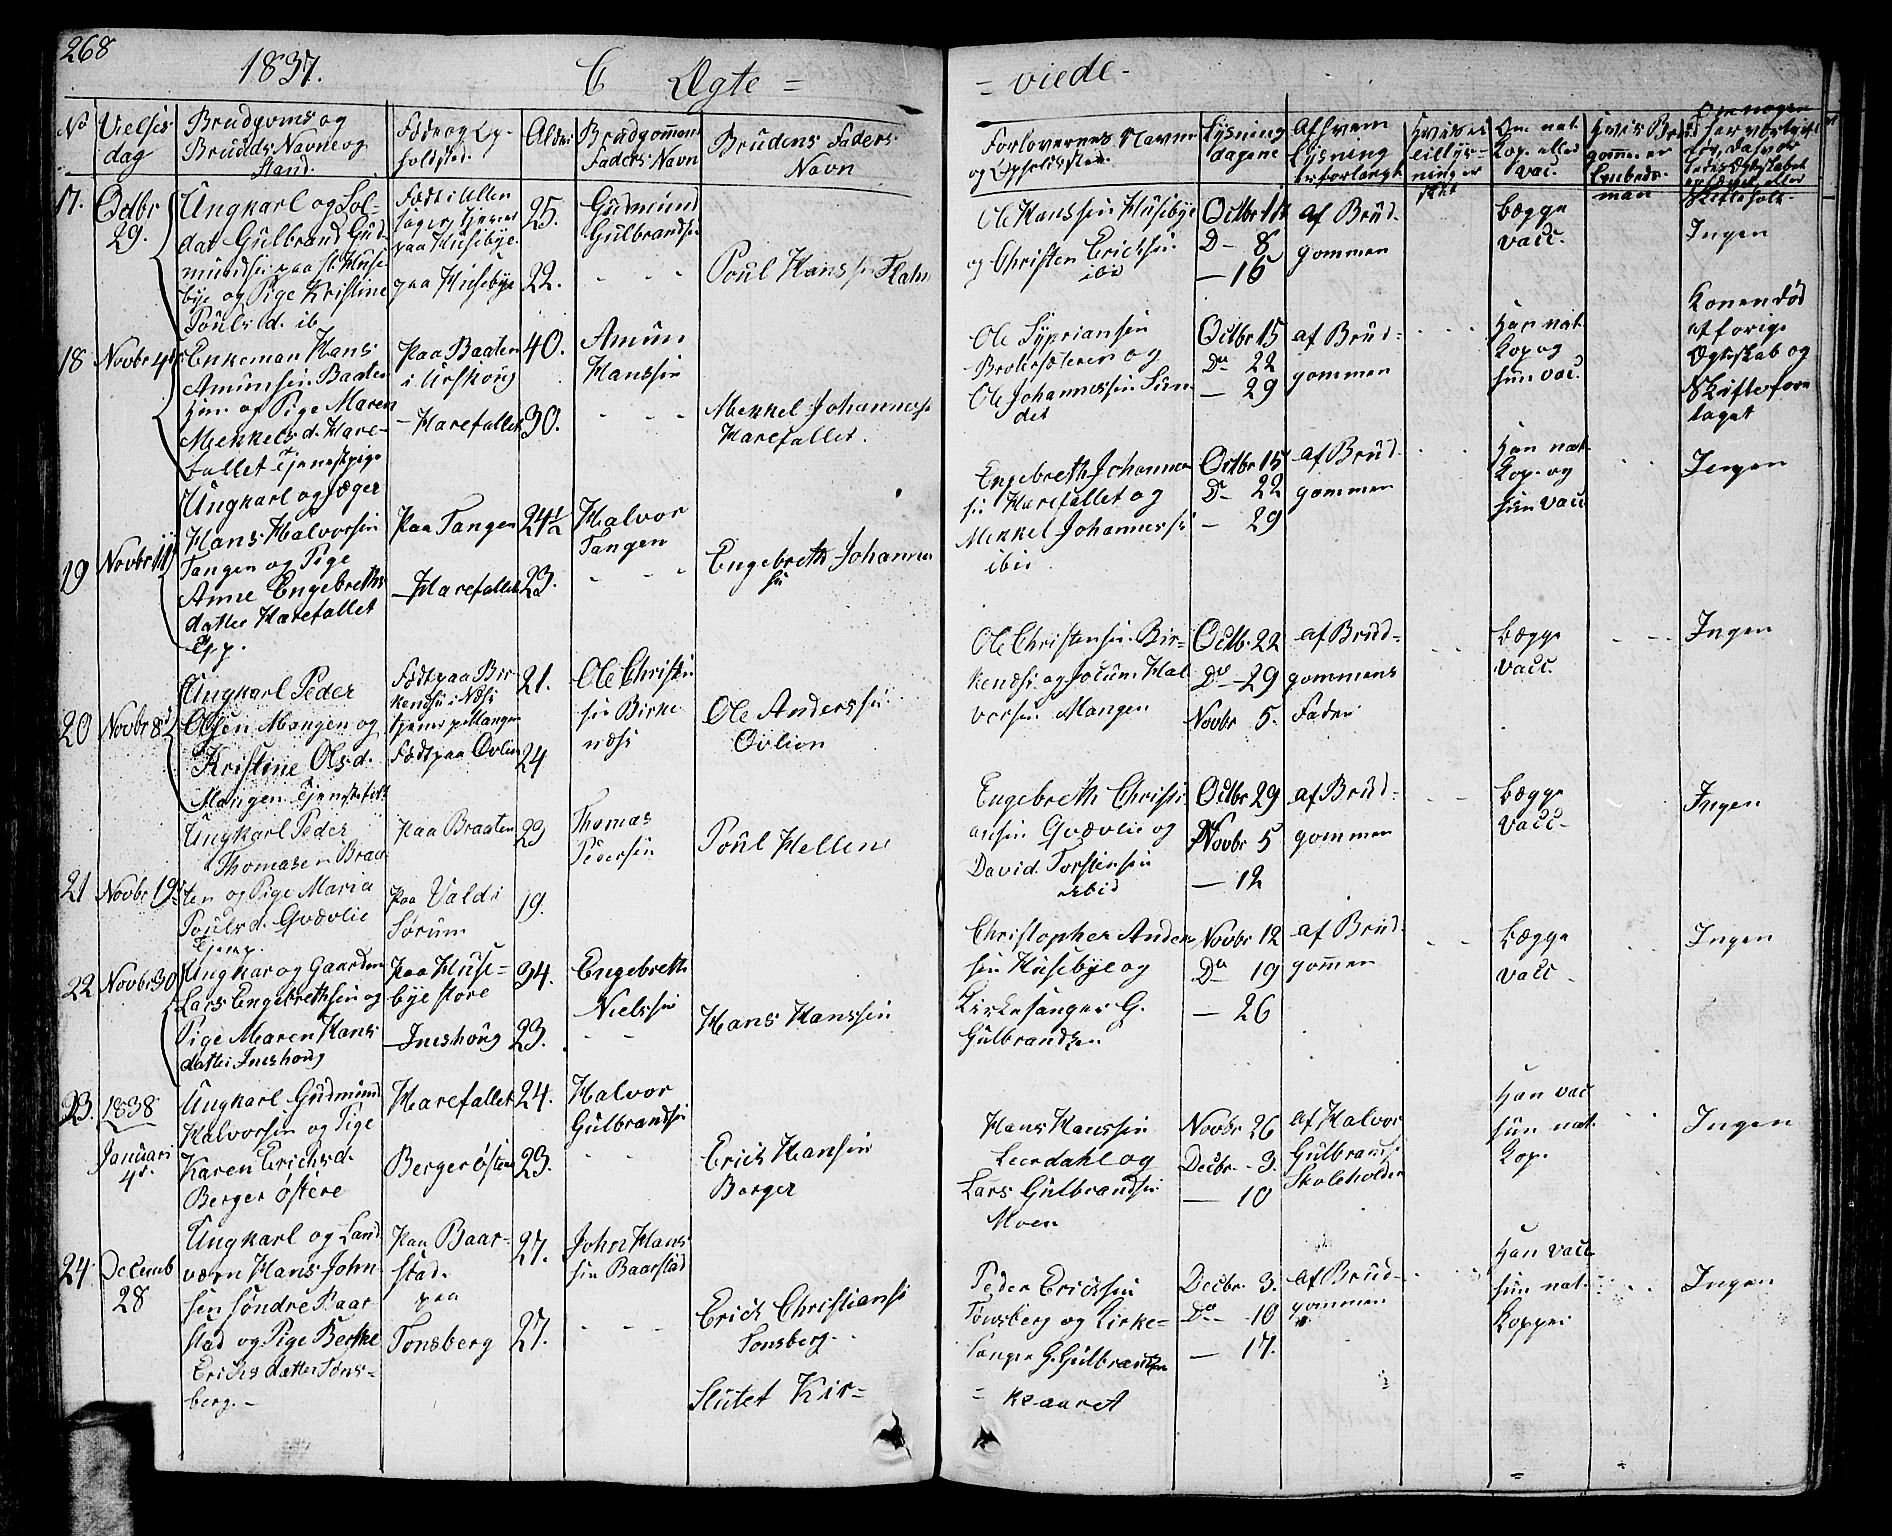 268
1837.
C Ægte =
= viede-
No
Vielses
dag
Brudgoms og
Bruds Navne og
Stand.
Føde og Op-
holdsted.
Alder
Brudgommens
Faders Navn
Brudens Faders
Navn
Forlovernes Navne
og Opholdssted.
Lysnings
dagene
Af hvem
Lysning
er forlangt
Om nat.
Kop. eller
vac.
Hvis Brud
gommen er
Embeds-
man
17.
Octbr
29.
Ungkarl og Sol-
dat Gulbrand Gud-
mundsen paa st. Huse-
bye og Pige Kristine
Pouls d. ib.
Født i Ullen
sager tjener
paa Husebye.
paa Husebye
25.
22.
Gudmund
Gulbrandsen
Poul Hanssen Flatn
Ole Hanssen Husebye
og Christen Ericksen
ibid
Octbr 1st
D- 8
- 15
af Brud-
gommen
Bægge
vacc.
Ingen
18
Novbr 4de
Enkeman Hans
Amunsen Baaten
Hun og Pige Maren
Menkels d. Hare-
fallet Tjenestpige
Paa Baaten
i Urskoug
- Harefallet
40.
30.
Amun
Hanssen
Menkel Johanness.
Harefallet.
Ole Sypriansen
Brotersøteren og
Ole Johannessen Sun-
det
Octbr 15
Do 22
- 29
af Brud-
gommen
Han nat.
Kop og
hun vac.
Konen død
af forige
Ægteskab og
Skiftefore
taget
19
Novbr 11
Ungkarl og Jæger
Hans Halvorsen
Tangen og Pige
Anne Engebreths
datter Harefallet
Paa Tangen
- Harefallet
24½
23.
Halvor
Tangen
Engebreth Johannes
sen
Engebreth Johannes
sen Harefallet og
Menkel Johannessen
ibid
Octbr 15
D- 22
- 29
af Brud-
gommen
Han nat.
Kop. og
hun vacc
Ingen
20
Novbr 8de
Ungkarl Peder
Olsen Mangen og
Kristine Ols d.
Mangen Tjenestefolk
Født paa Bir-
kenæs i Næs
tjener p Mangen
Født paa Ovlien
21.
24
Ole Christen
sen Birke
næs
Ole Anderssen
Ovlien
Ole Christensen Bir-
kenæs og Jocum Hal
vorsen Mangen
Octb. 22
Do - 29
Novbr 5.
af Brud-
gommens
Fader
Bægge
vacc.
Ingen
21
Novbr 19
Ungkarl Peder
Thomasen Braa
ten og Pige Maria
Pouls d. Qvævlie
Tjenep.
Paa Braaten
Paa Valdi
Sørum
29
19.
Thomas
Pedersen
Poul Hellen
Engebreth Christi
ansen Qvævlie og
David Torstensen
ibid
Octbr 29
Novbr 5
- 12
af Brud-
gommen
Bægge
vacc-
Ingen
22
Novbr 30
Ungkar og Gaardm
Lars Engebrethsen og
Pige Maren Hans
datter Ineshoug
Paa Huse-
bye store
- Ineshoug
34.
23.
Engebreth
Nielssen
Hans Hanssen
Christopher Ander
sen Husebye og
Kirkesanger G.
Gulbrandsen
Novbr 12
Do 19
- 26
af Brud-
gommen
Bægge
vacc-
Ingen
23.
1838
Januari
4de
Ungkarl Gudmund
Halvorsen og Pige
Karen Erichs d.
Berger østere
Harefallet
Berger østere
24.
23.
Halvor
Gulbrandsen
Erich Hansen
Berger
Hans Hanssen
Leerdahl og
Lars Gulbrandsen
Moen
Novbr 26
Decbr - 3.
- 10
af Halvor
Gulbrands.
Skoleholder
Han vac
hun nat.
Kop.
Ingen
24
Decemb
28
Ungkarl og Land
værn Hans John
sen søndre Baar
stad og Pige Berthe
Erichs datter Tøns-
berg.-
Paa Baar-
stad.
paa
Tonsberg
27.
27.
John Hans
sen Baarstad
Erich Christians.
Tonsberg-
Peder Ericksen
Tønsberg og Kirke-
sanger G. Gulbrandsen
Decbr 3.
Do - 10
- 17.
af Brud-
gommen
Han vacc
hun nat-
Kopper
Ingen
Slutet Kir=
= keaaret